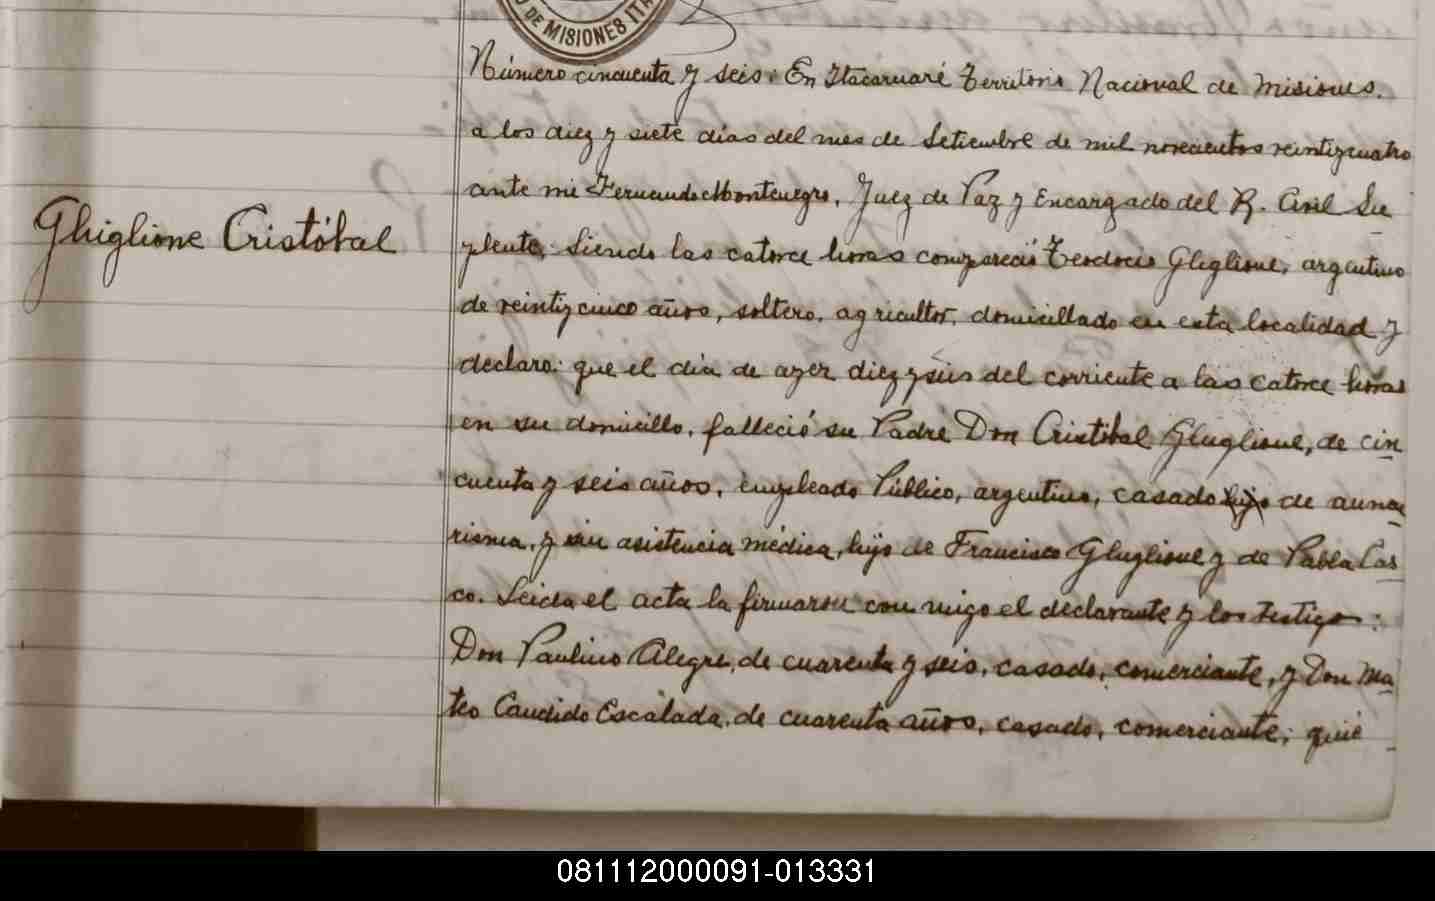 O DE MISIONES ITA
Número cincuenta y seis: En Itacaruaré Territorio Nacional de Misiones.
a los diez y siete dias del mes de Setiembre de mil novecientos veintiycuatro
ante mi Fernando Montenegro, Juez de Paz y Encargado del R. Civil Su
Ghiglione Cristóbal
plente, siendo las catorce horas compareció Teodocio Ghiglione, argentino
de veintiycinco años, soltero, agricultor, domicillado en esta localidad y
declaro: que el dia de ayer diezyséis del corriente a las catorce horas
en su domicillo, falleció su Padre Don Cristóbal Ghiglione, de cin
cuenta y seis años, empleado Público, argentino, casado hijo de auneu
risma, y sin asistencia médica, hijo de Francisco Ghiglione y de Pabla Cas
co. Leida el acta la firmaron con migo el declarante y los testigos:
Don Paulino Alegre, de cuarenta y seis, casado, comerciante, y Don Ma
teo Candido Escalada, de cuarenta años, casado, comerciante; quie
081112000091-013331